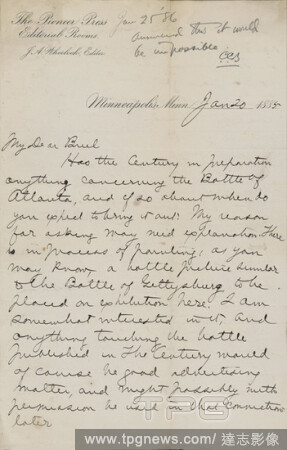 The Pioneer Press
Editorial Rooms
J. A. Wheelock, Editor.
Jan 25 '86
answered that it would
be impossible
CCB
Minneapolis, Minn. Jan 20 188
My Dear Buel
Has the Century in preparation
anything concerning the Battle of
Atlanta, and if so about when do
you expect to bring it out? My reason
for asking may need explanation There
is in process of painting, as you
may know, a battle picture similar
to the Battle of Gettysburg to be
placed on exhibition here. I am
somewhat interested in it, and
anything touching the battle
published in The Century would
of course be good advertising
matter, and might possibly with
permission be used in that connection
later
TPG
www.tpgnews.com / 達志影像